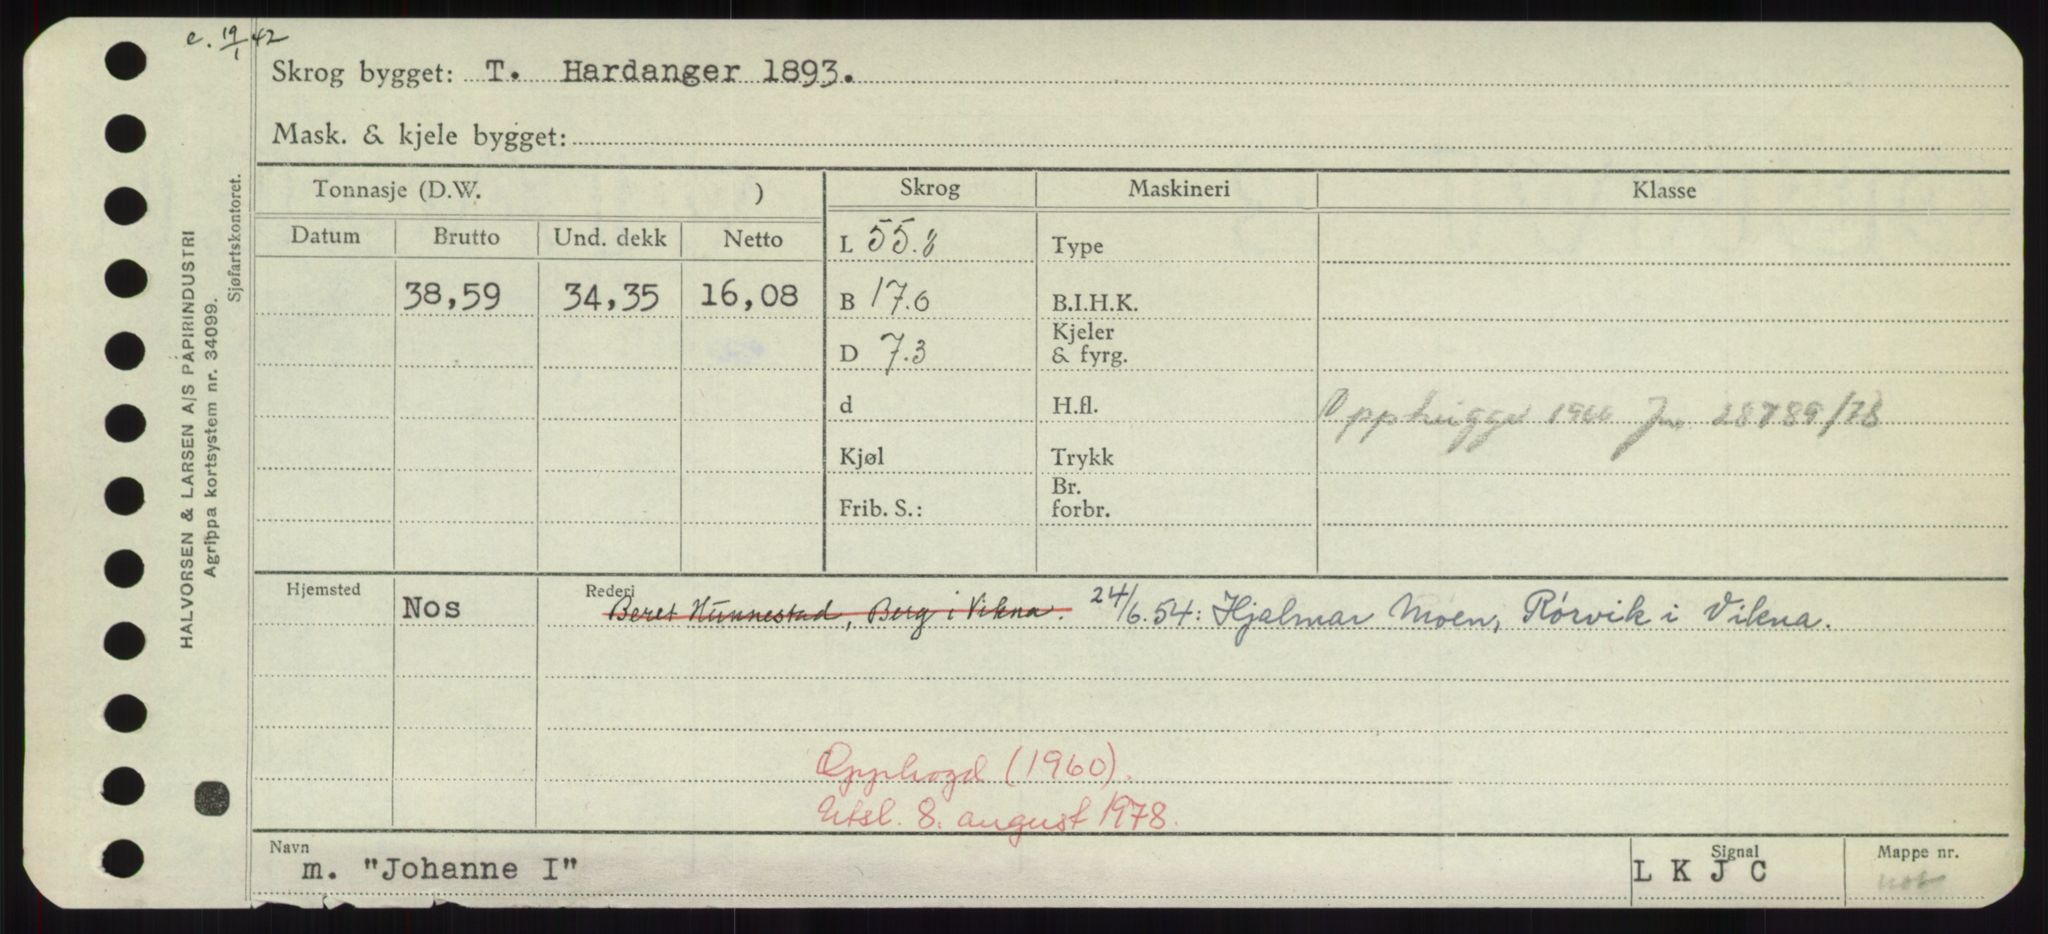 c. 19/1 42
Skrog bygget: T. Hardanger 1893.
Mask. & kjele bygget:
Tonnasje (D.W. )
Skrog
Maskineri
Klasse
Datum
Brutto
Und. dekk
Netto
38,59
34,35
16,08
L 55.8
B 17.6
D 7.3
d
Kjøl
Frib. S.:
Type
B.I.H.K.
Kjeler
& fyrg.
H.fl.
Trykk
Br.
forbr.
Opphugget Jnr 28789/78
Hjemsted
Nos
Rederi
Beret Hunnestad, Berg i Vikna. 24/6.54: Hjalmar Moen, Rørvik i Vikna.
Opphogd (1960).
Utsl. 8. august 1978.
Navn
m. "Johanne I"
Signal
L K J C
Mappe nr.
HALVORSEN & LARSEN A/S PAPIRINDUSTRI
Agrippa kortsystem nr. 34099.
Sjøfartskontoret.